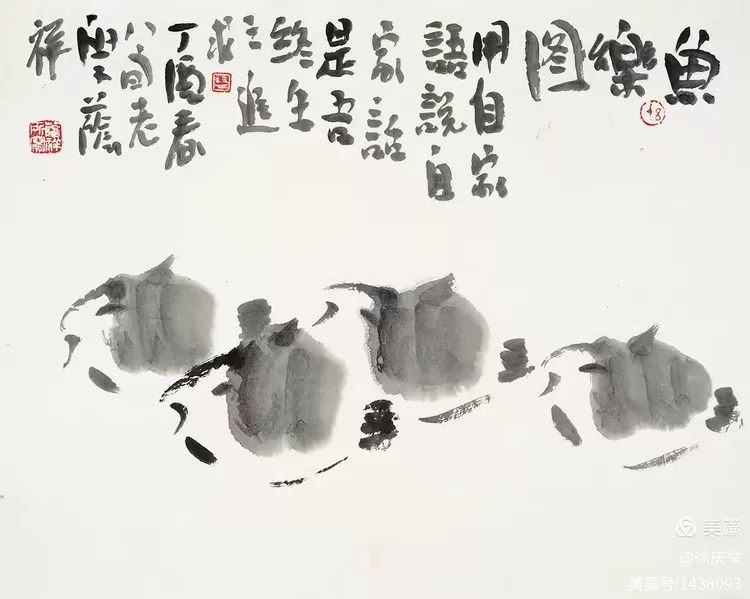 鱼樂图
用自家
語說自
家話
是吾
終生
之追
求
丁酉春
八旬老
叟蔭
祥
美篇
@徐庆举
美篇号:1438093